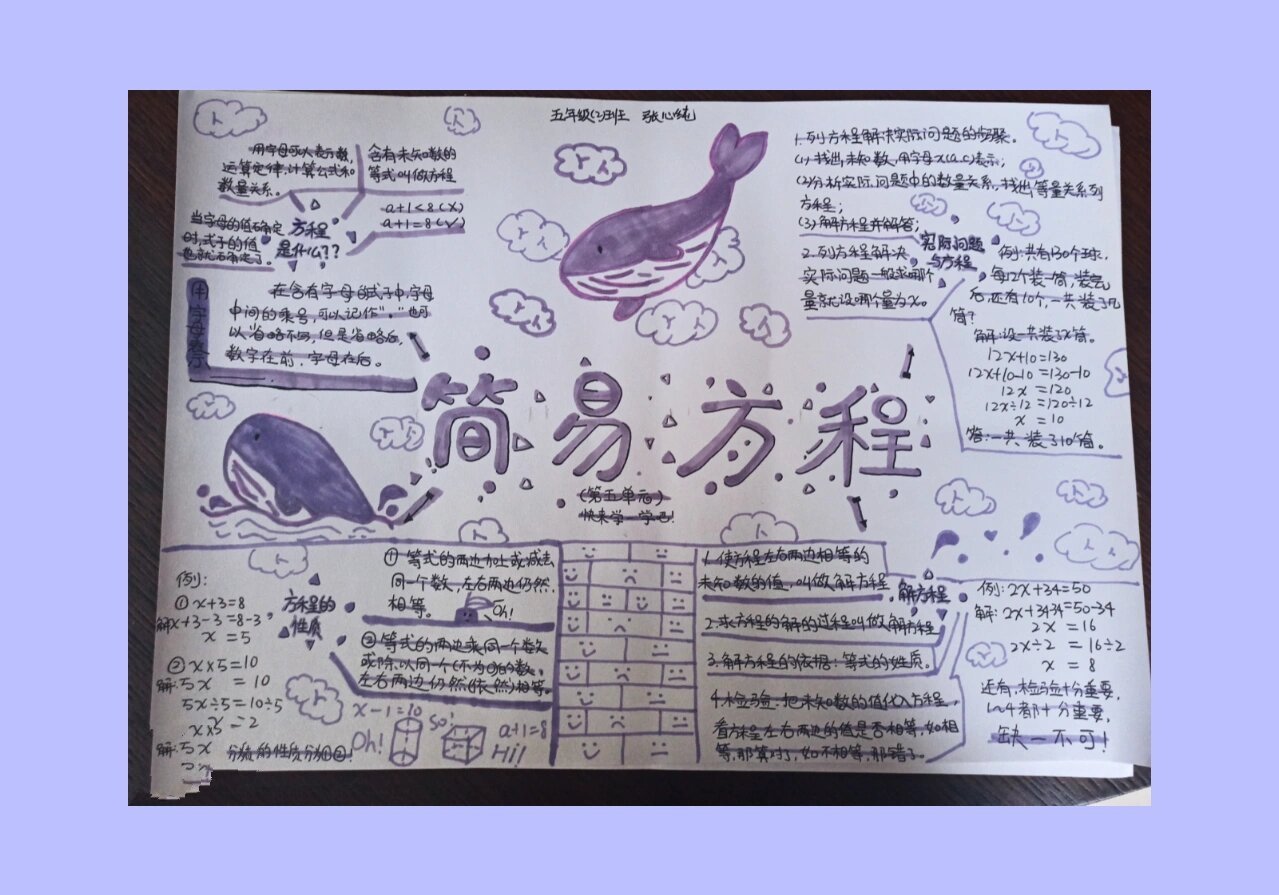 五年级(2)班 张心纯
用字母可以表示数,
运算定律,计算公式和
数量关系。
含有未知数的
等式叫做方程
a+1<8(×)
a+1=8(√)
当字母的值确定
时,式子的值
也就确定了。
方程
是什么??
在含有字母的式子中,字母
中间的乘号,可以记作"·"也可
以省略不写,但是省略后,
数字在前,字母在后。
1.列方程解决实际问题的步骤。
(1)找出未知数,用字母x(a.c)表示;
(2)分析实际问题中的数量关系,找出等量关系列
方程;
(3)解方程并解答;
2.列方程解决
实际问题一般求哪个
量就设哪个量为x。
实际问题
与方程
例:共有130个球,
每12个装一筒,装完
后,还有10个,一共装了几
筒?
解:设一共装了x筒。
12x+10=130
12x+10-10=130-10
12x=120
12x÷12=120÷12
x=10
答:一共装了10筒。
简易方程
(第五单元)
快来学一学吧!
例:
①x+3=8
解x+3-3=8-3
x=5
②x×5=10
解:5x=10
5x÷5=10÷5
x=2
解:5x
方程的
性质
①等式的两边加上或减去
同一个数,左右两边仍然
相等。
Oh!
②等式的两边乘同一个数
或除以同一个(不为0)的数,
左右两边仍然(依然)相等。
x-1=10
Oh!
So!
a+1=8
Hi!
1.使方程左右两边相等的
未知数的值,叫做解方程
2.求方程的解的过程叫做解方程
3.解方程的依据:等式的性质。
4.检验:把未知数的值代入方程,
看方程左右两边的值是否相等,如相
等,那算对了,如不相等,那错了。
解方程
例:2x+34=50
解:2x+34-34=50-34
2x=16
2x÷2=16÷2
x=8
还有,检验十分重要,
1~4都十分重要,
缺一不可!